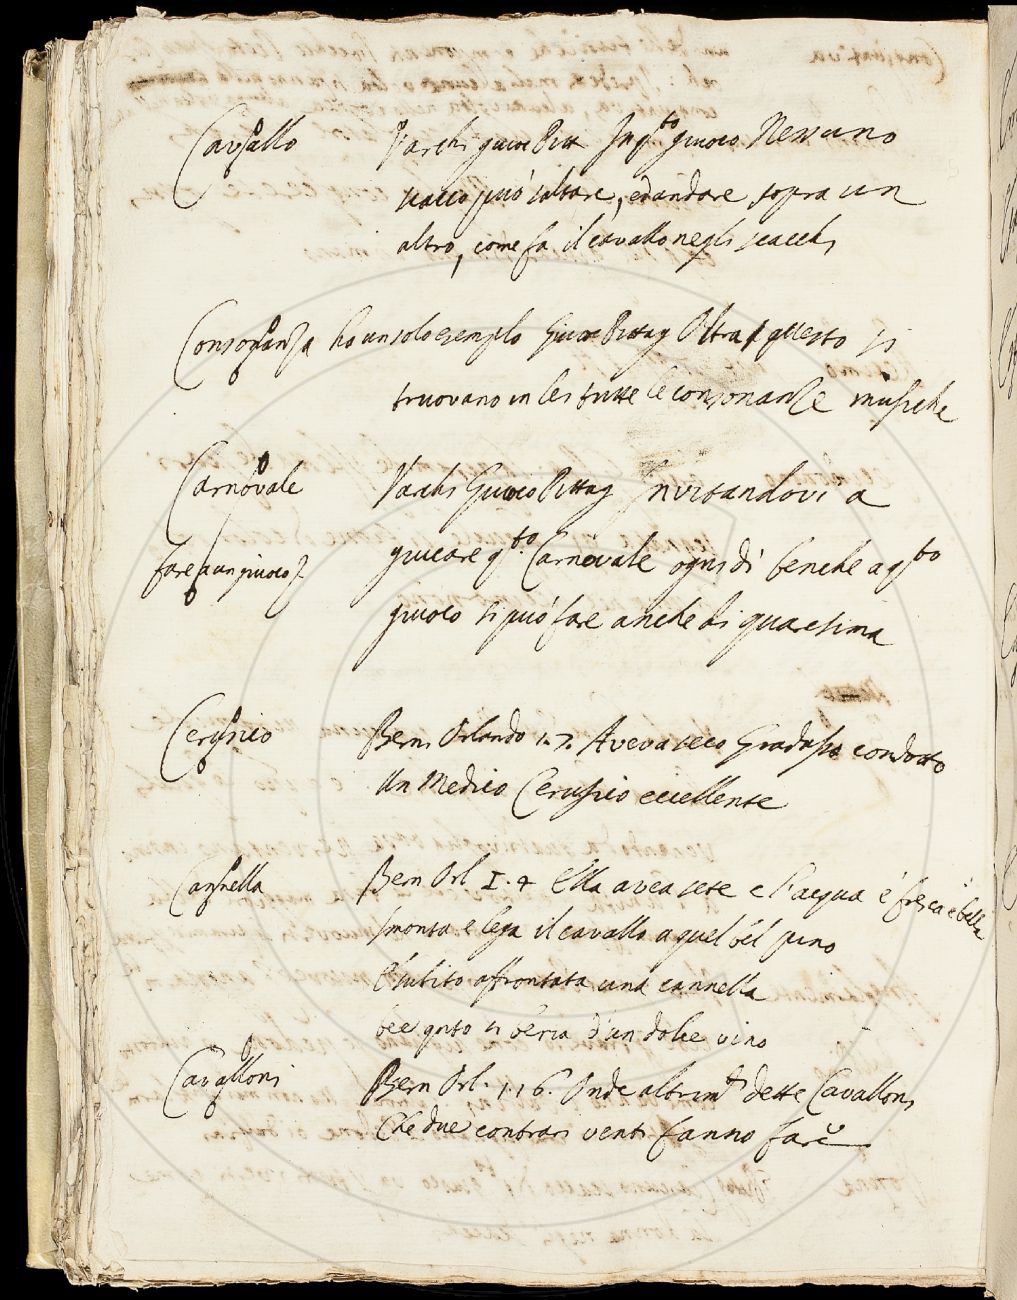 Cavallo Varchi giuoc Pitt In q.to giuoco Nessuno
scacco può saltare, ed andare sopra un
altro, come fa il cavallo negli scacchi
Consonanza ha un solo esemplo Giuoc Pittag Oltra questo si
truovano in lei tutte le consonanze musiche
Carnovale Varchi Giuoco Pittag Invitandovi a
giucare q.to Carnovale ogni dì benche a q.to
fare a un giuoco
giuoco si può fare anche di quaresima
Cerusico Bern Orlando 1.7. Aveva seco Gradasso condotto
Un Medico Cerusico eccellente
Cannella Bern Orl 1.4 Ella avea sete e l'acqua è fresca e bella
smonta e lega il cavallo a quel bel pino
E subito affrontata una cannella
bee quto si beria d'un dolce vino
Cavalloni Bern Orl. 1.16. Onde altrim.ti dette Cavalloni
Che due contrari venti fanno fare